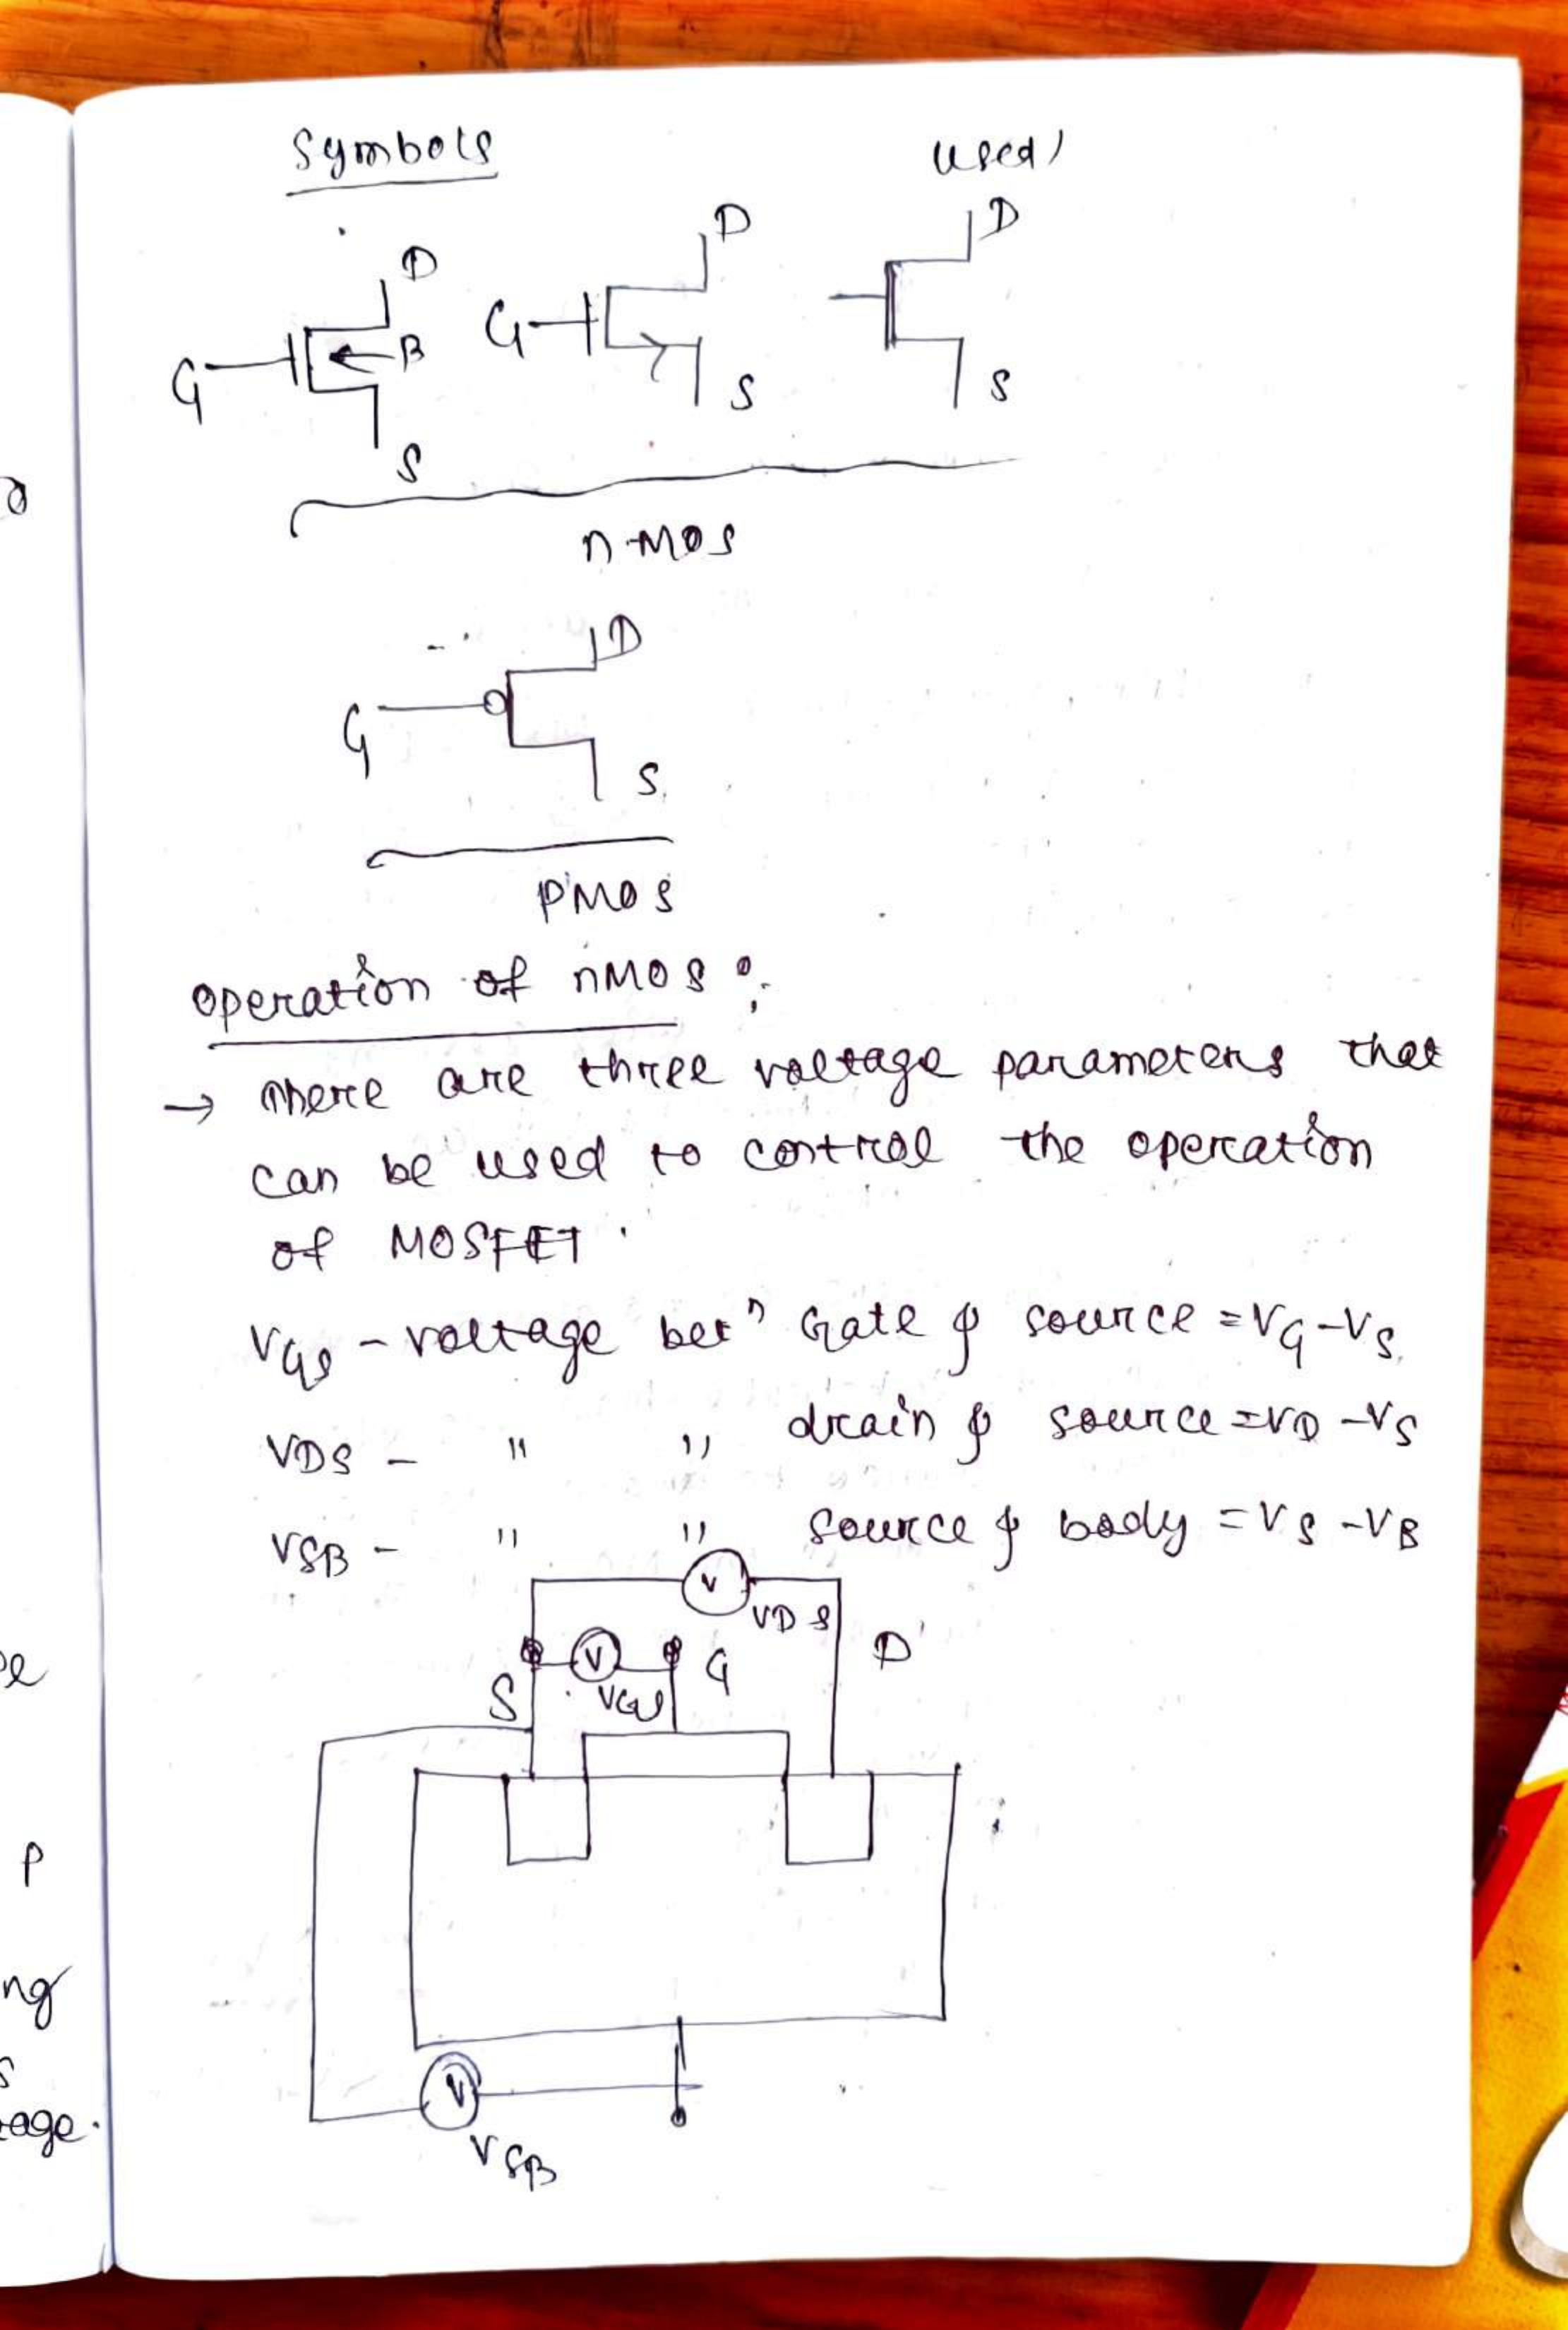 Symbols
used)
D
G
B
S
G
D
S
D
S
n-MOS
D
G
S
PMOS
operation of nMOS :
→ There are three voltage parameters that
can be used to control the operation
of MOSFET.
VGS - voltage betn Gate & source = VG-VS
VDS - " " drain & source = VD-VS
VSB - " " source & body = VS-VB
V
VDS
V
G
D
S
VGS
V
VSB
P
ng
s
tage.